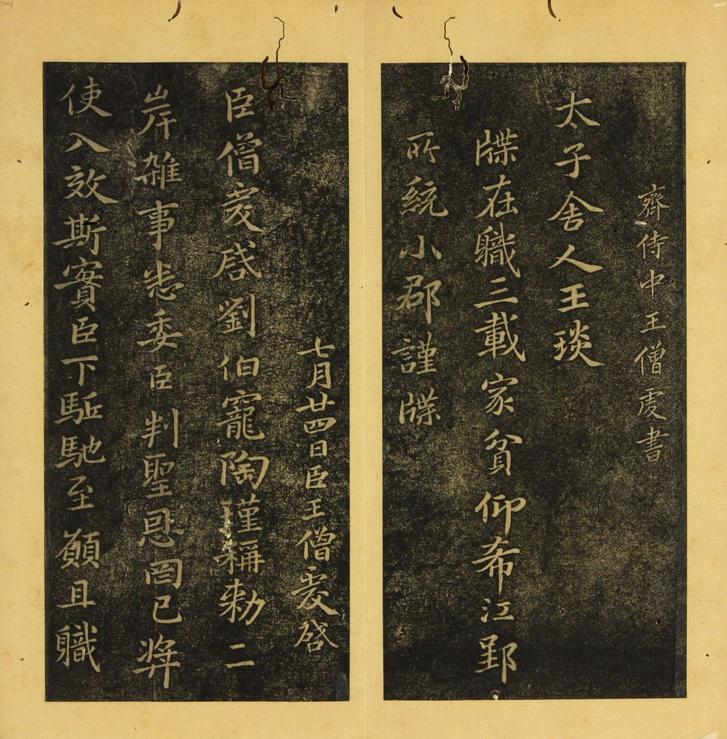 齊侍中王僧虔書
太子舍人王琰
牒在職三載家貧仰希江郢
所統小郡謹牒
七月廿四日臣王僧虔啓
臣僧虔啓劉伯寵陶瑾稱勑二
岸雜事悉委臣判聖恩罔已奬
使入效斯實臣下駈馳至願且職